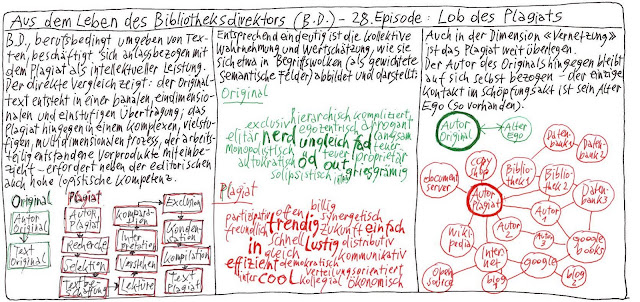 Aus dem Leben des Bibliotheksdirektors (B.D.) – 28. Episode: Lob des Plagiats
B.D., berufsbedingt umgeben von Tex-
ten, beschäftigt sich anlassbezogen mit
dem Plagiat als intellektueller Leistung.
Der direkte Vergleich zeigt: der Original-
text entsteht in einer banalen, eindimensio-
nalen und einstufigen Übertragung; das
Plagiat hingegen in einem komplexen, vielstu-
figen, multidimensionalen Prozess, der arbeits-
teilig entstandene Vorprodukte miteinbe-
zieht – erfordert neben der editorischen
auch hohe logistische Kompetenz.
Original
Autor
Original
Text
Original
Plagiat
Autor
Plagiat
Recherche
Selektion
Textbe-
schaffung
Lektüre
Verstehen
Inter-
pretation
Kompa-
ration
Exclusion
Konden-
sation
Kompilation
Text
Plagiat
Entsprechend eindeutig ist die kollektive
Wahrnehmung und Wertschätzung, wie sie
sich etwa in Begriffswolken (als gewichtete
Semantische Felder) abbildet und darstellt:
Original
hierarchisch kompliziert
exclusiv egozentrisch arrogant
elitär nerd ungleich fad langsam
monopolistisch teuer
autokratisch öd out proprietär
solipsistisch griesgrämig
Plagiat
billig
participativ offen synergetisch
freundlich trendig Zukunft einfach
schnell lustig distributiv
in gleich kommunikativ
effizient demokratisch
verteilungsorientiert
inter cool kollegial ökonomisch
Auch in der Dimension «Vernetzung»
ist das Plagiat weit überlegen.
Der Autor des Originals hingegen bleibt
auf sich selbst bezogen – der einzige
Kontakt im Schöpfungsakt ist sein Alter
Ego (so vorhanden).
Autor
Original
Alter
Ego
Daten-
bank 1
Daten-
bank 2
copy
shop
document
server
Biblio-
thek 1
Biblio-
thek 2
Daten-
bank 3
Autor
Plagiat
Autor
1
Wiki-
pedia
Autor
2
Autor
3
google
books
Inter-
net
google
Open
source
blog 1
blog 2